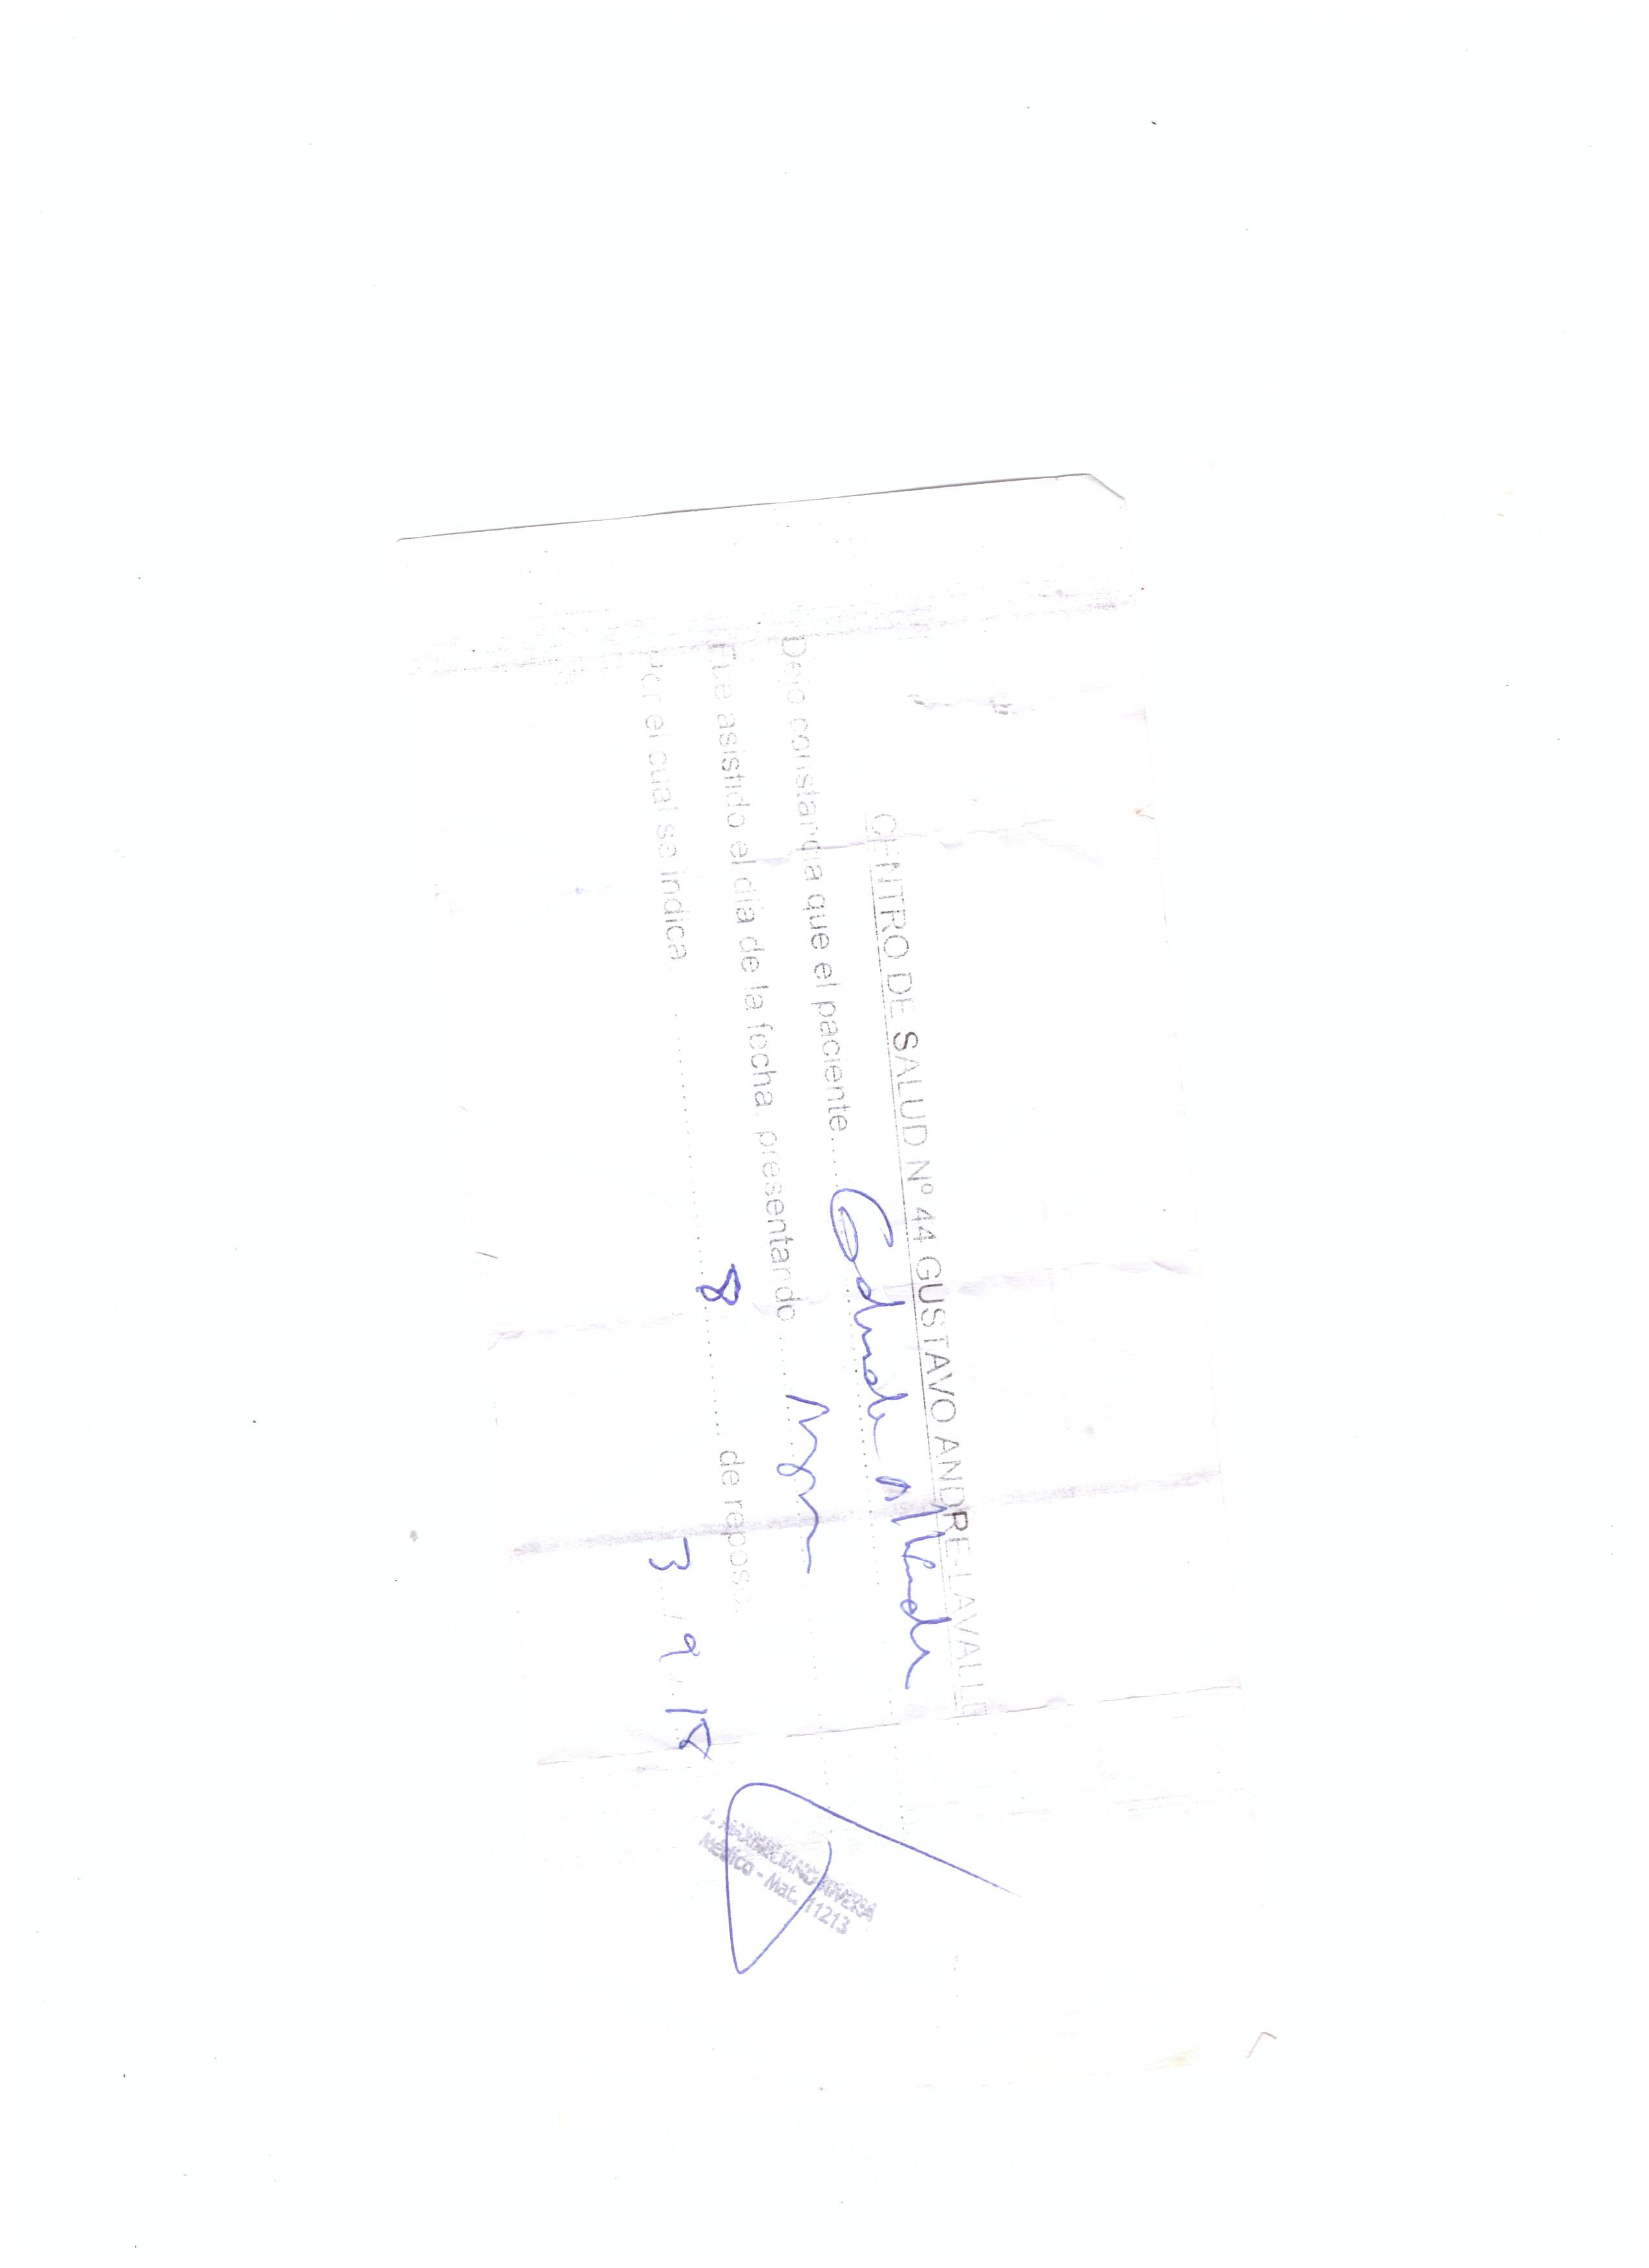 CENTRO DE SALUD Nº 44 GUSTAVO ANDRE - LAVALLE
Dejo constancia que el paciente
Fue asistido el día de la fecha presentando
por el cual se indica 8 de reposo.
3 / 9 / 18
RIVERA
Médico - Mat. 11213